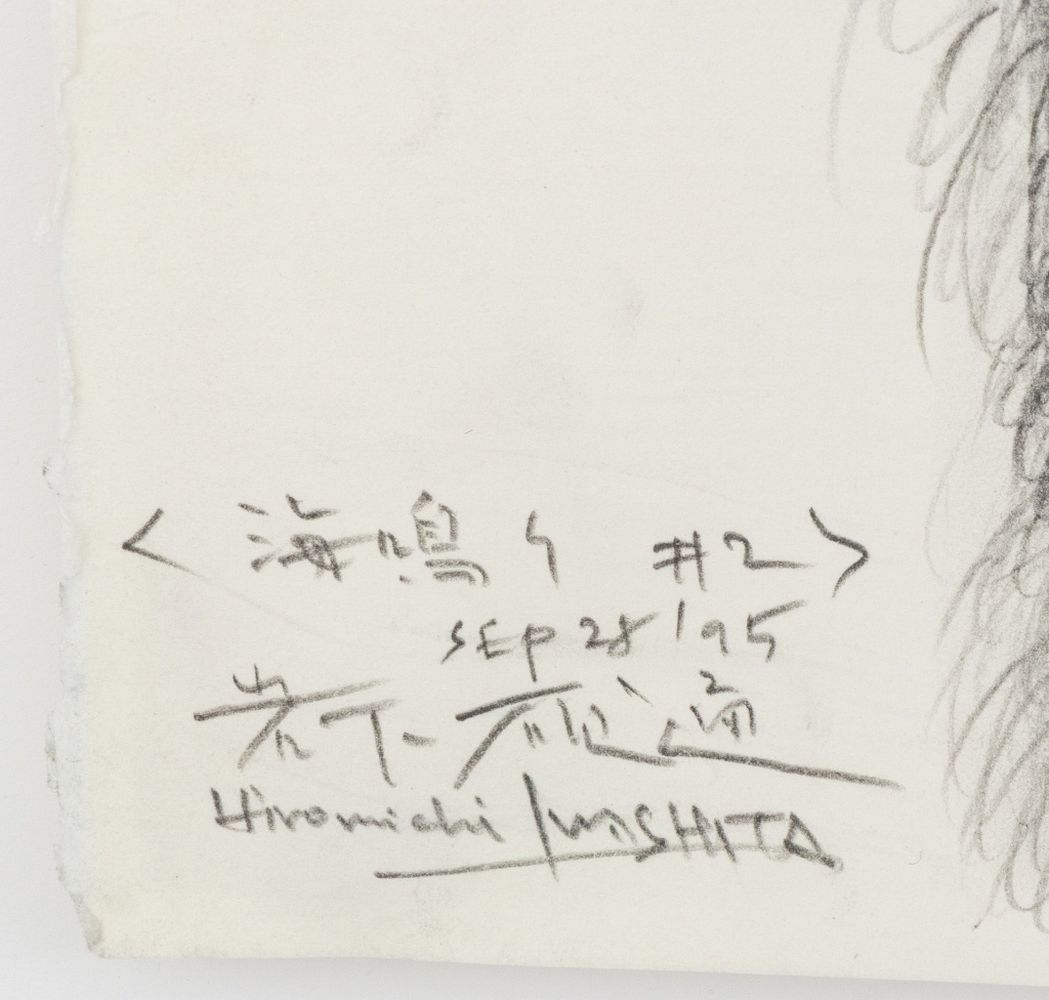 < 海鳴り #2 >
SEP 28 '95
岩下碩通
Hiromichi IWASHITA